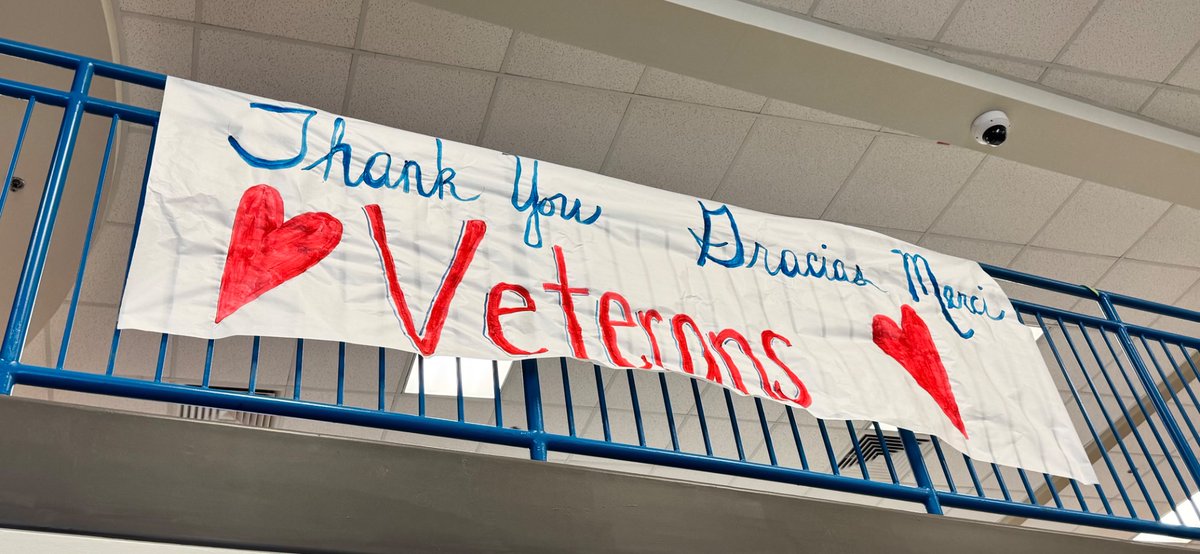 Thank You Gracias Merci
Veterans